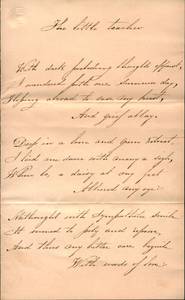 The little teacher
With dark perturbing thoughts oppress'd,
I wander'd forth one Summer day,
Hoping abroad to ease my breast,
And grief allay.
Deep in a lone and green retreat,
I laid me down with many a sigh,
Where lo, a daisy at my feet
my eye.
with Sympathetic smile
It seemed to pity and
And thus my bitter care beguile
With words of love.